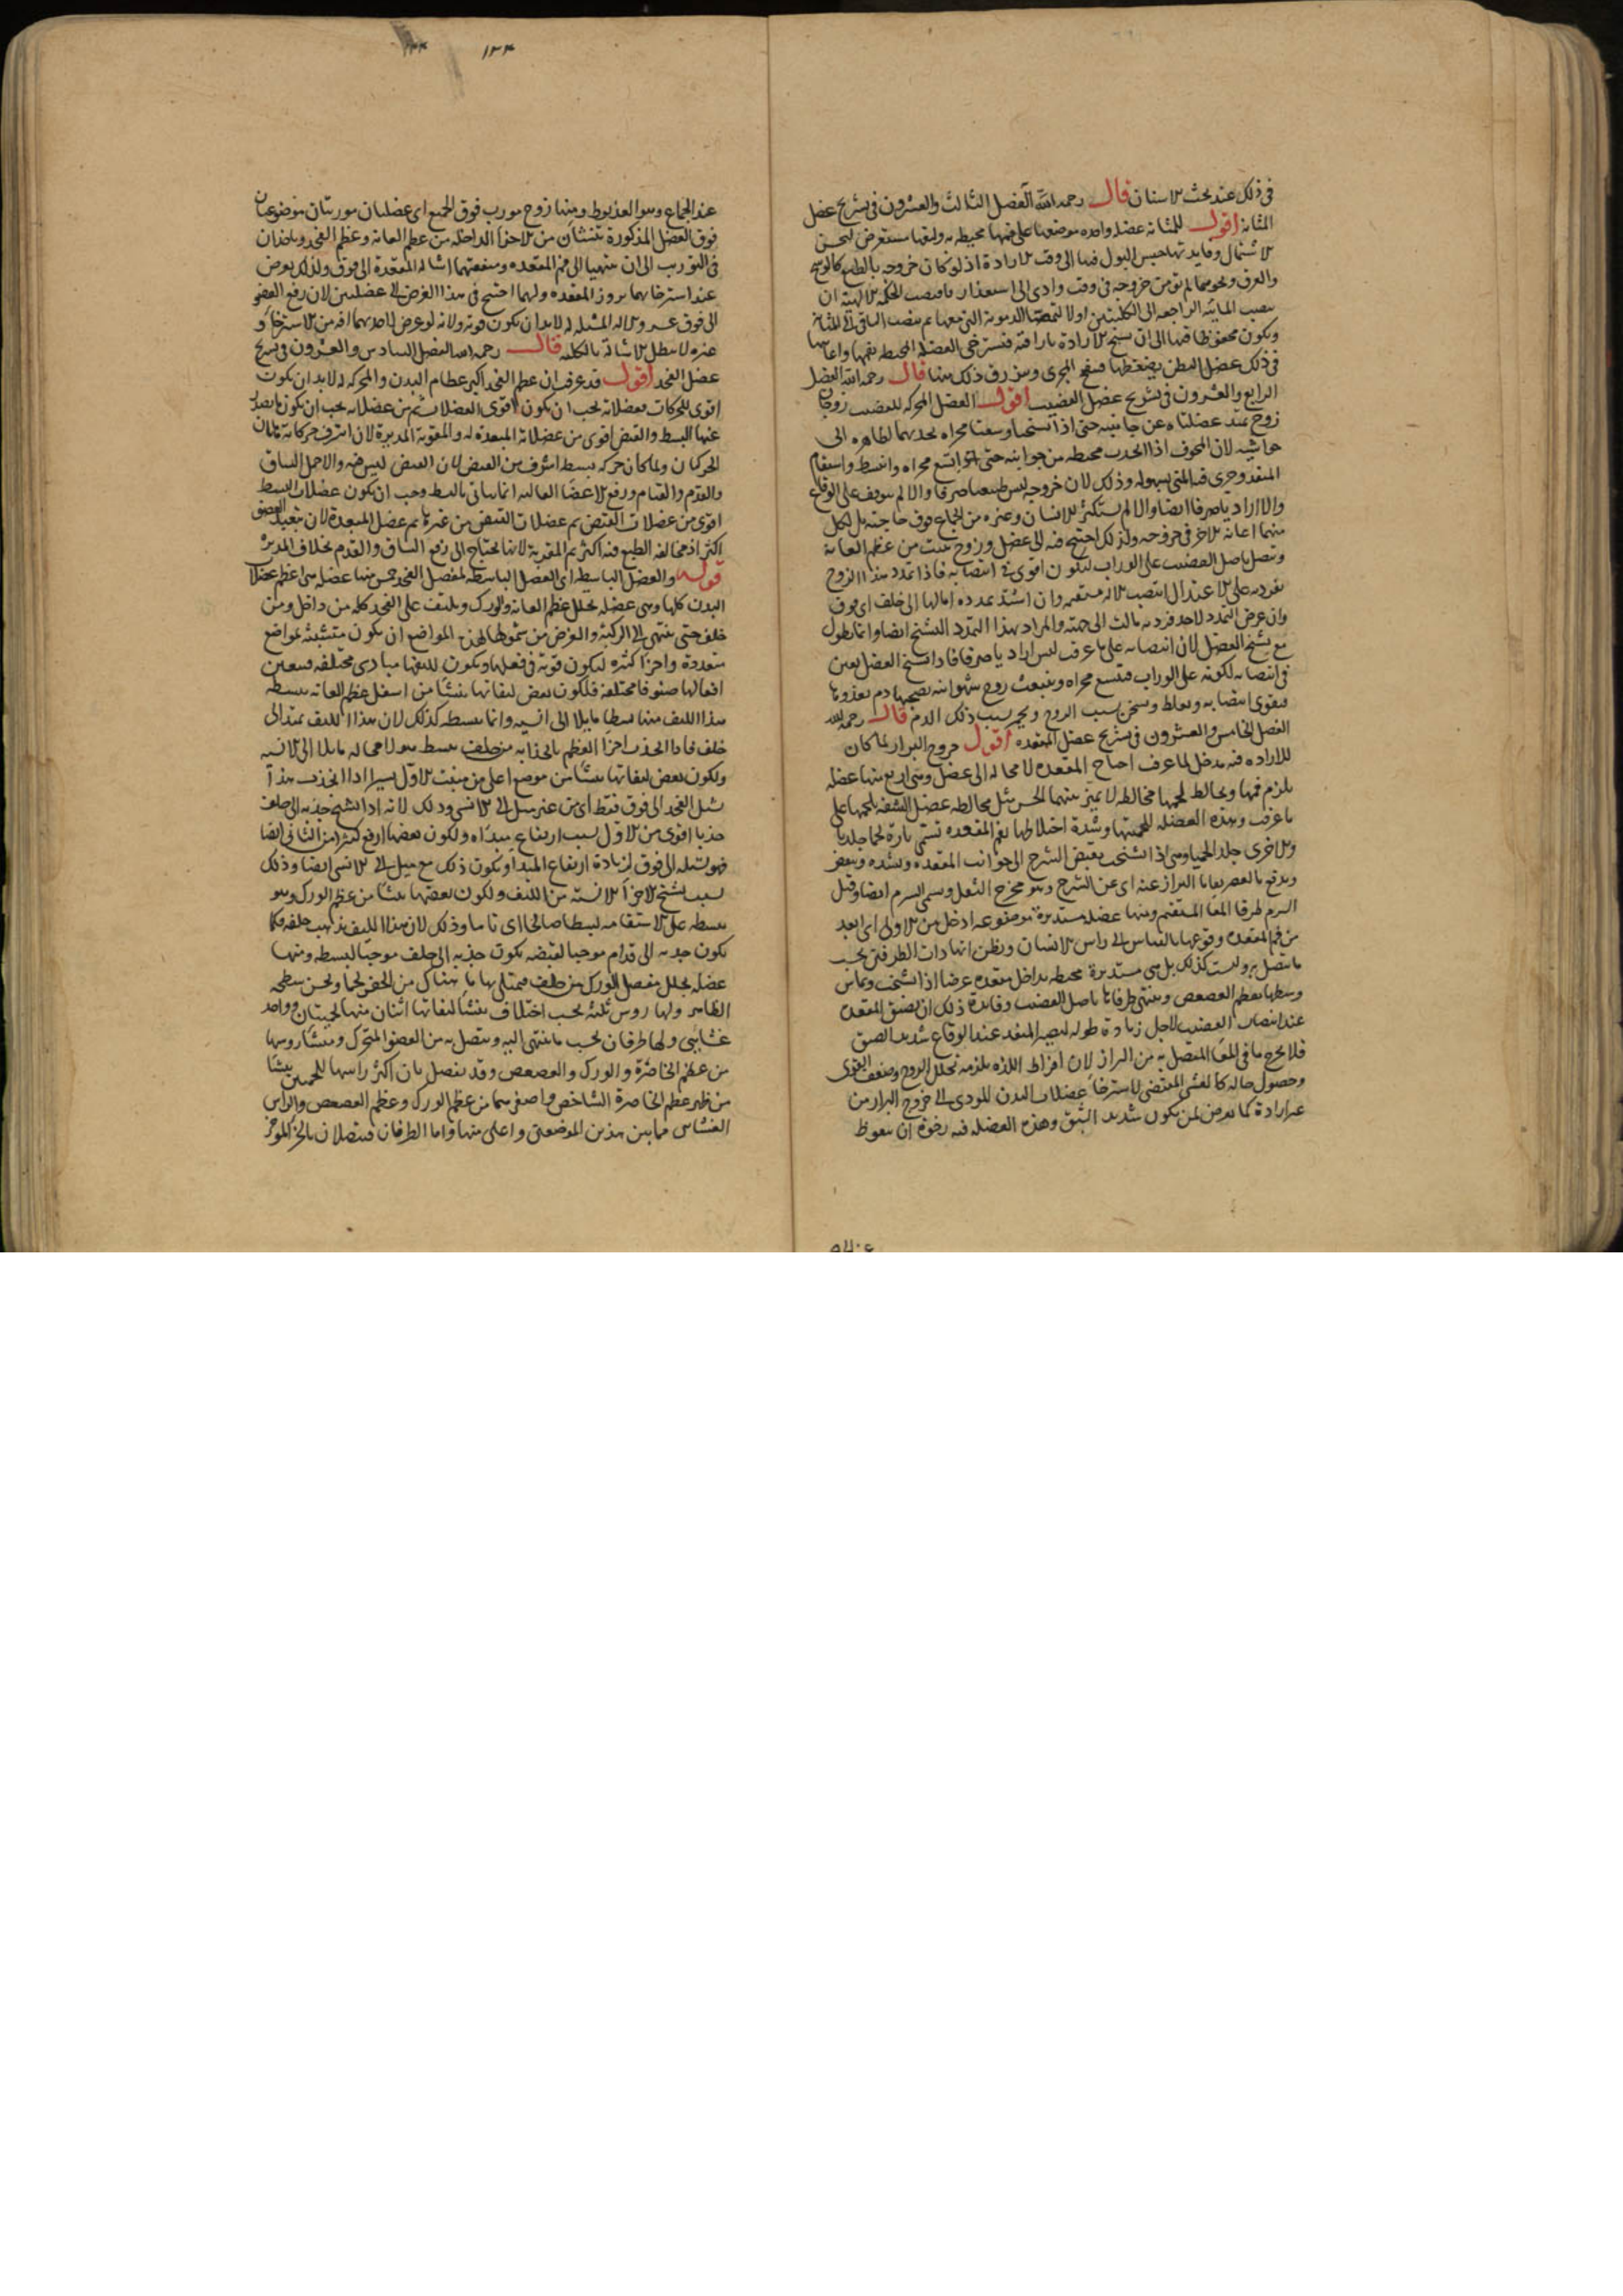 في ذلك عند بحث الاسنان قال رحمه الله الفصل الثالث والعشرون في تشريح عضل
المثانة اقول للمثانة عضلة واحدة موضعها على فمها محيطة به وليفها مستعرض ليحسن
الاشتمال وفايدتها حبس البول فيها الى وقت الارادة اذ لو كان خروجه بالطبع كالوسخ
والعرق ونحوهما لم نومن خروجه في وقت وادى الى استقذار فاقتضت الحكمة الالهية ان
تنصب المائية الراجعة الى الكليتين اولا لتمتص الدموية التي معها ثم ينصب الباقي الى المثانة
ويكون محفوظا فيها الى ان تسنح الارادة باراقته فتسترخي العضلة المحيطة بفمها واعانها
في ذلك عضل البطن بضغطها فينفتح المجرى ويزرق ذلك منها قال رحمه الله الفصل
الرابع والعشرون في تشريح عضل القضيب اقول العضل المحركة للقضيب زوجان
زوج تمتد عضلتاه عن جانبيه حتى اذا تشنجتا وسعتا مجراه بجذبهما لظاهره الى
حاشيته لان المجوف اذا انجذب محيطه من جوانبه حتى اتسع مجراه وانبسط واستقام
المنفذ وجرى فيه المنى بسهولة وذلك لان خروجه ليس طبيعيا صرفا والا لم يتوقف على الوقاع
والا اراديا صرفا ايضا والا لم يستكثر الانسان وغيره من الجماع فوق حاجته بل لكل
منهما اعانة الاخر في خروجه ولذلك احتيج فيه الى عضل وزوج ينبت من عظم العانة
ويتصل باصل القضيب على الوراب ليكون اقوى في انتصابه فاذا تمدد هذا الزوج
بفرديه على الاعتدال انتصب الالة مستقيمة وان اشتد تمدده امالها الى خلف اي فوق
وان عرض التمدد لاحد فرديه مالت الى جهته والمراد بهذا التمدد التشنج ايضا وانما يطول
مع تشنج العضل لان انتصابه على ما عرفت ليس اراديا صرفا فاذا تشنج العضل يعين
في انتصابه لكونه على الوراب فيتسع مجراه وينبعث روح شهوانية يصحبها دم يغذوها
فيقوى انتصابه ويغلظ ويسخن بسبب الروح ويحمر بسبب ذلك الدم قال رحمه الله
الفصل الخامس والعشرون في تشريح عضل المقعدة اقول خروج البراز لما كان
للارادة فيه مدخل لما عرف احتاج المقعدة لا محالة الى عضل وهي اربع منها عضلة
يلزم فمها ويخالط لحمها مخالطة لا يميز بينهما الحس مثل مخالطة عضل الشفة بلحمها على
ما عرفت وهذه العضلة للحميتها وشدة اختلاطها بفم المقعدة تسمى تارة لحما جلديا
والاخرى جلدا لحميا وهي اذا تشنجت يقبض الشرج الى جوانب المقعدة وتشده وتعصر
ويدفع بالعصر بقايا البراز عنه اي عن الشرج وهو مخرج الثفل ويسمى السرم ايضا وقيل
السرم طرف المعا المستقيم ومنها عضلة مستديرة موضوعة ادخل من الاولى اي ابعد
من فم المقعدة وقوعها بالقياس الى راس الانسان ويظن انها ذات الطرفين بحسب
ما يتصل به وليست كذلك بل هي مستديرة محيطة بداخل مقعدة عرضا اذا تشنجت ويماس
وسطها بعظم العصعص وينتهي طرفاها باصل القضيب وفايدة ذلك ان يضيق المقعدة
عند انتصاب القضيب لاجل زيادة طوله ليصير المنفذ عند الوقاع شديد الضيق
فلا يخرج ما في المعا المتصل به من البراز لان افراط اللذة يلزمه تحلل الروح وضعف القوى
وحصول حالة كالغشي المقتضي لاسترخاء عضلات البدن المودي الى خروج البراز من
غير ارادة كما يعرض لمن يكون شديد الشبق وهذه العضلة فيه رخوة ان يغوط
١٢٤
عند الجماع وهو العذيوط ومنها زوج مورب فوق الجميع اي عضلتان موربتان موضوعتان
فوق العضل المذكورة تنشئان من الاجزا الداخلة من عظم العانة وعظم الفخذ وياخذان
في التوريب الى ان ينتهيا الى فم المقعدة ومنفعتهما اشالة المقعدة الى فوق ولذلك يعرض
عند استرخائهما بروز المقعدة وانما احتيج في هذا الغرض الى عضلتين لان رفع العضو
الى فوق عسر والالة المشيلة له لابد ان يكون قوية ولانه لو عرض لاحديهما افة من الاسترخا و
غيره لا يبطل الاشالة بالكلية قال رحمه الله الفصل السادس والعشرون في تشريح
عضل الفخذ اقول قد عرفت ان عظم الفخذ اكبر عظام البدن والمحركة له لابد ان يكون
اقوى المحركات فعضلاته يجب ان يكون اقوى العضلات ثم من عضلاته يجب ان يكون ما يصدر
عنها البسط والقبض اقوى من عضلاته المبعدة له والمقربة المديرة لان اشرف حركاته هاتان
الحركتان ولما كان حركة بسطه اشرف من القبض لان القبض ليس فيه والاحمل الساق
والقدم والقيام ورفع الاعضا العالية انما يتاتى بالبسط وجب ان يكون عضلات البسط
اقوى من عضلات القبض ثم عضلات القبض من غيرها ثم عضل المبعدة لان تبعيد العضو
اكثر اذ مخالفة الطبع فيه اكثر ثم المقربة لانها يحتاج الى رفع الساق والقدم بخلاف المديرة
قوله والعضل الباسطة اي العضل الباسطة لمفصل الفخذ خمس منها عضلة هي اعظم عضلات
البدن كلها وهي عضلة تجلل عظم العانة والورك ويلتف على الفخذ كله من داخل ومن
خلف حتى ينتهي الى الركبة والغرض من شمولها لهذه المواضع ان يكون متشبثة بمواضع
متعددة واجزا كثيرة ليكون قوية في فعلها ويكون لليفها مبادى مختلفة فيتعين
افعالها صنوفا مختلفة فلكون بعض ليفاتها ينشا من اسفل عظم العانة يبسطه
هذا الليف منها بسطا مايلا الى انسية وانما يبسطه كذلك لان هذا الليف يمتد الى
خلف فاذا انجذب اجزا العظم بانجذابه من خلف يبسط بعد لا محالة مايلا الى الانسية
ولكون بعض ليفاتها ينشا من موضع اعلى من منبت الاول يسيرا اذا انجذب هذا
يشل الفخذ الى فوق فقط اي من غير ميل الى الانسي وذلك لانه اذا تشنج جذبه الى خلف
جذبا اقوى من الاول بسبب ارتفاع مبداه ولكون بعضها ارفع كثيرا من الثاني ايضا
فهو يشيله الى فوق لزيادة ارتفاع المبدا ويكون ذلك مع ميل الى الانسي ايضا وذلك
بسبب تشنج الاجزا الانسية من الليف ولكون بعضها ينشا من عظم الورك وهو
يبسطه على الاستقامة بسطا صالحا اي تاما وذلك لان هذا الليف يذهب خلفه فكما
يكون جذبه الى قدام موجبا لقبضه يكون جذبه الى خلف موجبا لبسطه ومنها
عضلة تجلل مفصل الورك من خلف فيمتلي بها ما هناك من الحفر لحما ويحسن سطحه
الظاهر ولها روس ثلثة بحسب اختلاف منشا ليفاتها اثنان منها لحميتان وواحد
غشايي ولها طرفان بحسب ما ينتهي اليه ويتصل به من العضو المتحرك ومنشا روسها
من عظم الخاصرة والورك والعصعص وقد يفصل بان اكثر راسيها اللحميين ينشا
من ظهر عظم الخاصرة الشاخص واصغرهما من عظم الورك وعظم العصعص والراس
الغشايي فيما بين هذين الموضعين واعلى منها واما الطرفان فيتصلان بالجزء الموخر